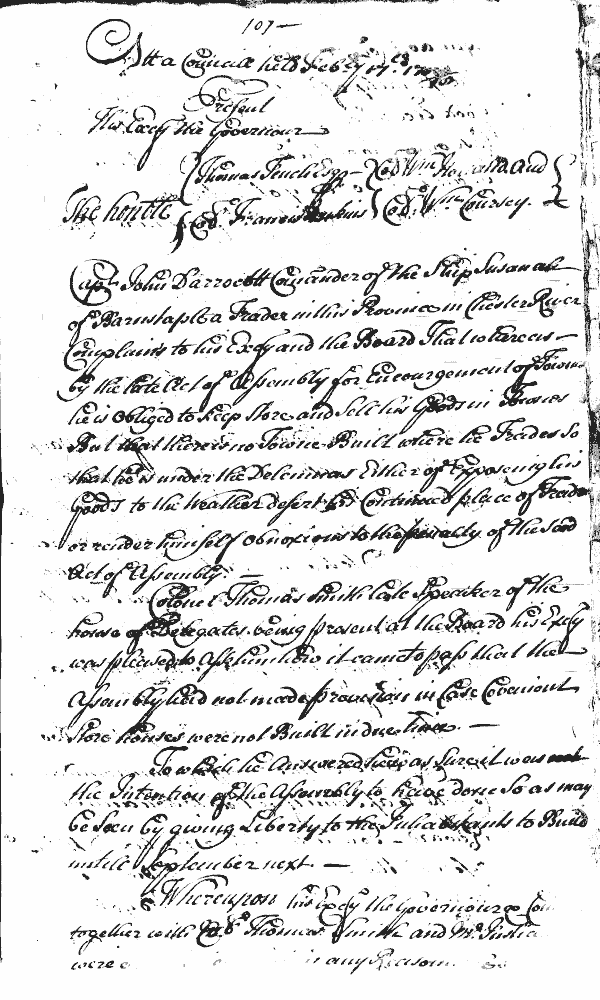 107 —
Att a Councill held Feb:ry 17th 170
Present
His Excy the Governour
Thomas Tench Esqr — Col Wm Holland and
The honble
Col Francis Jenkins Col Wm Coursey.
Capt John Darrocott Comander of the Ship Susanah
of Barnstaple a Trader in this Province in Chester River
Complains to his Excy and the Board That whereas —
by the late Act of Assembly for Encouragement of Towns
he is obliged to keep Store and sell his Goods in Townes
But that there is no Towne Built where he Trades so
that he is under the Delemmas Either of Exposeing his
Goods to the Weather desert his Continued place of Trade
or render himself obnoxious to the penalty of the said
Act of Assembly. —
Colonel Thomas Smith late Speaker of the
house of Delegates being present at the Board his Excy
was pleased to Ask him how it came to pass that the
Assembly had not made provision in Case Conveniont
Store houses were not Built in due time. —
To which he Answered he was sure it was
the Intention of the Assembly to have done so as may
be Seen by giving Liberty to the Inhabitants to Build
untill September next. —
Whereupon his Excy the Governour
together with Thomas Smith and Mr
were any Reason